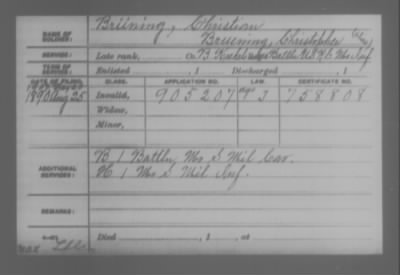 Brüning, Christian
NAME OF SOLDIER: Bruening, Christopher
SERVICE: Late rank, Co. B Battln U.S.R.C. Mo. Inf.
TERM OF SERVICE: Enlisted , 1 Discharged , 1
DATE OF FILING. CLASS. APPLICATION NO. CERTIFICATE NO.
1890 Aug 25 Invalid, 905207 758808
Widow,
Minor,
ADDITIONAL SERVICES: B 1 Battln, Mo S Mil Cav.
H 1 Mo S Mil Inf.
REMARKS:
Died , 1 , at